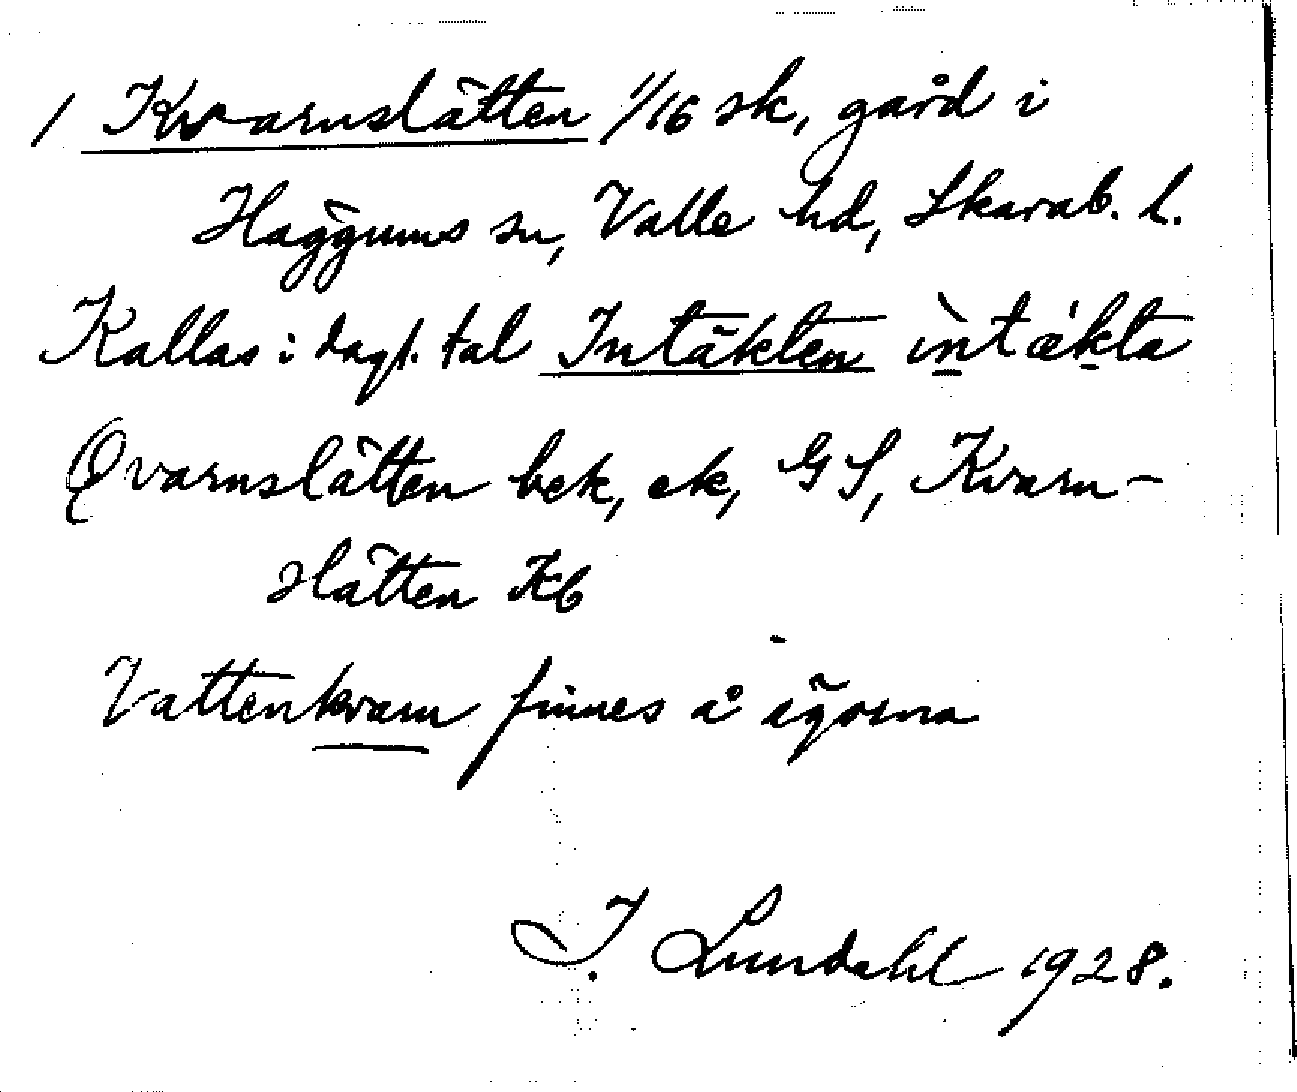 1 Kvarnslätten 1/16 sk, gård i
Häggums sn, Valle hd, Skarab. l.
Kallas i dagl. tal Intäkten ìntǽkta
Qvarnslätten bek, ek, GS, Kvarn-
slätten Kb
Vattenkvarn finnes å ägorna
I. Lundahl 1928.